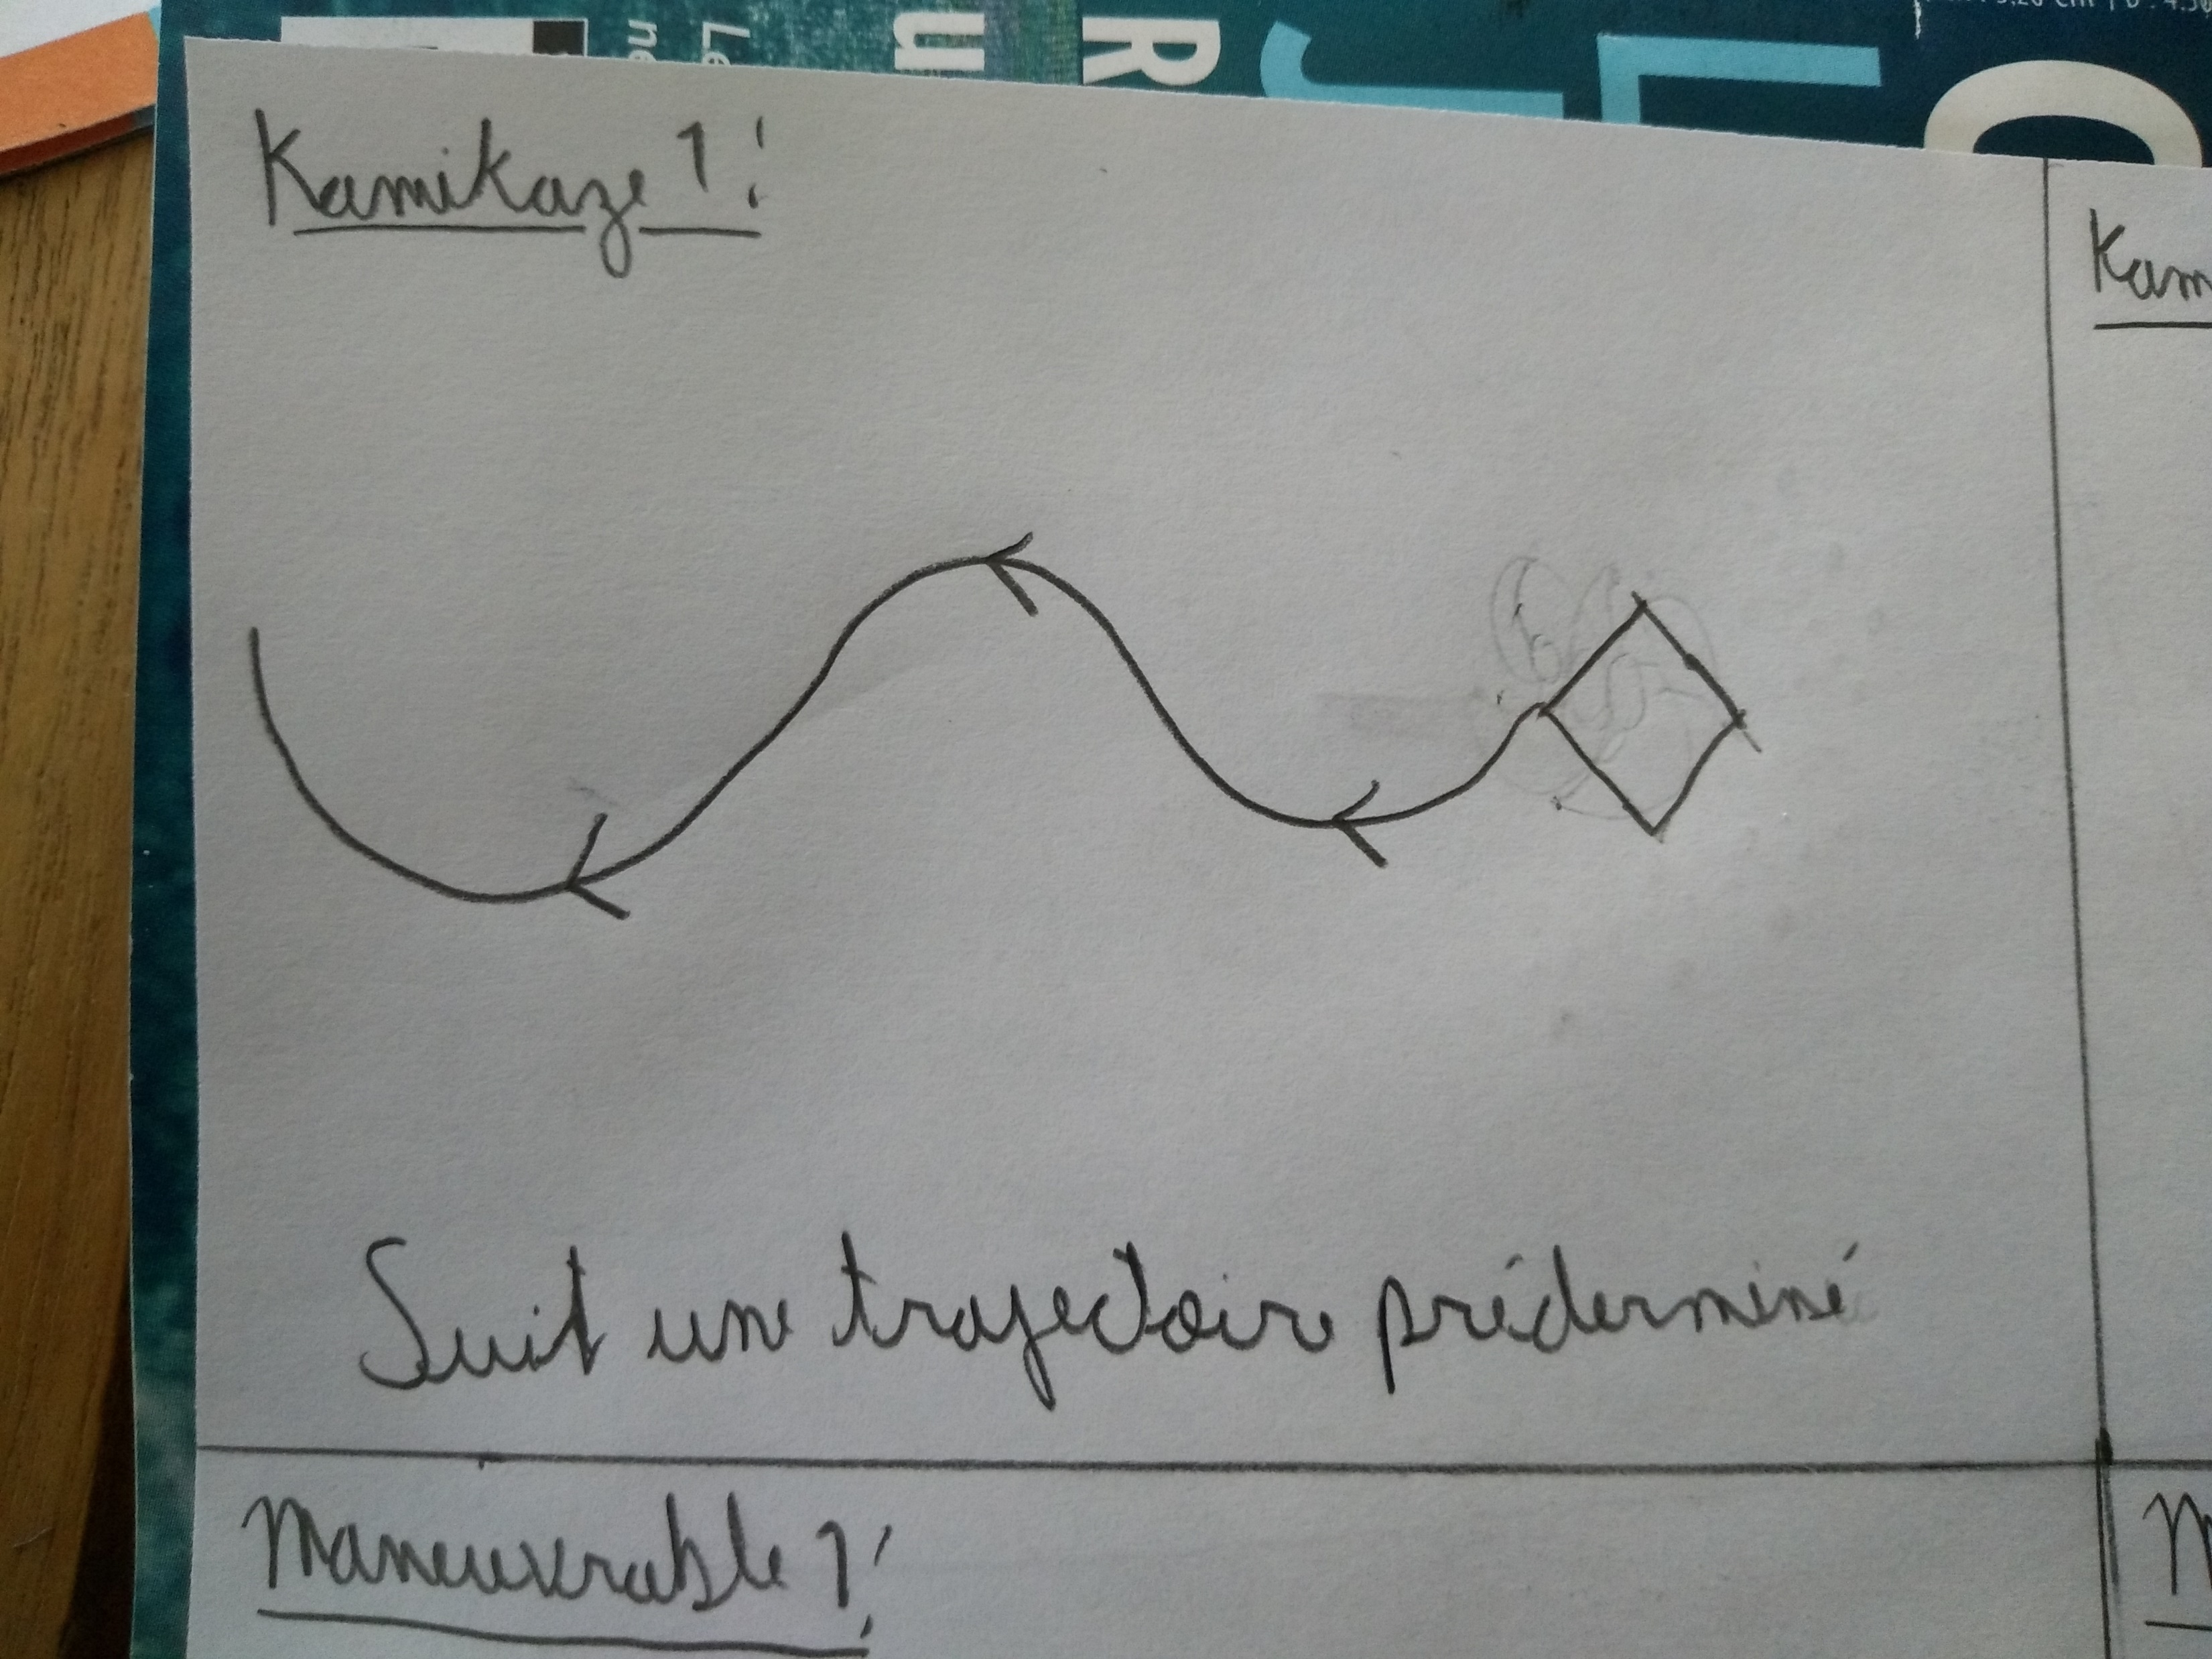 Kamikaze 1:
Kam
Suit une trajectoire préderminé
Maneuvrable 1:
M
R
u
Le
ne
J
L